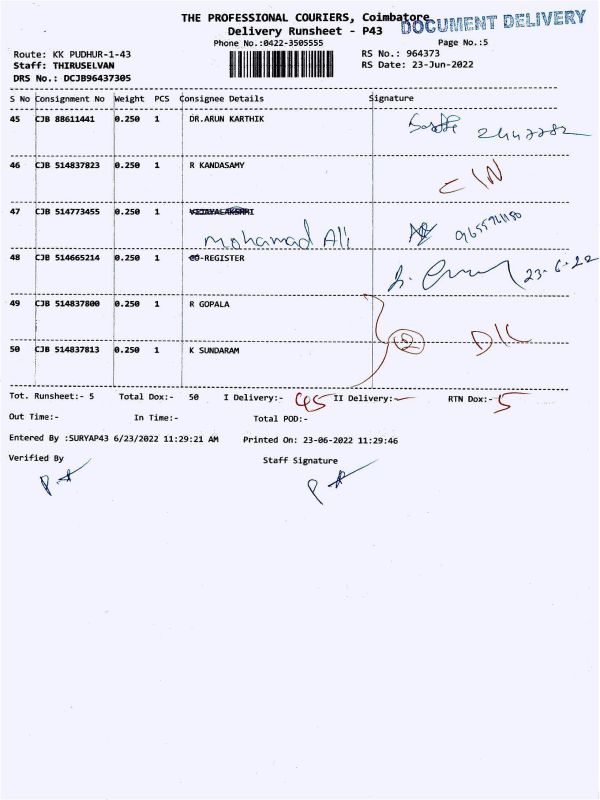 THE PROFESSIONAL COURIERS, Coimbatore
DOCUMENT DELIVERY
Delivery Runsheet - P43
Phone No.:0422-3505555
Page No.:5
Route: KK PUDHUR-1-43
RS No.: 964373
Staff: THIRUSELVAN
RS Date: 23-Jun-2022
DRS No.: DCJB96437305
S No Consignment No Weight PCS Consignee Details Signature
45 CJB 88611441 0.250 1 DR.ARUN KARTHIK
46 CJB 514837823 0.250 1 R KANDASAMY
47 CJB 514773455 0.250 1 VIJAYALAKSHMI
Mohamad Ali
48 CJB 514665214 0.250 1 CO-REGISTER
23-6-22
49 CJB 514837800 0.250 1 R GOPALA
2 DLL
50 CJB 514837813 0.250 1 K SUNDARAM
Tot. Runsheet:- 5 Total Dox:- 50 I Delivery:- 45 II Delivery:- — RTN Dox:- 5
Out Time:- In Time:- Total POD:-
Entered By :SURYAP43 6/23/2022 11:29:21 AM Printed On: 23-06-2022 11:29:46
Verified By Staff Signature